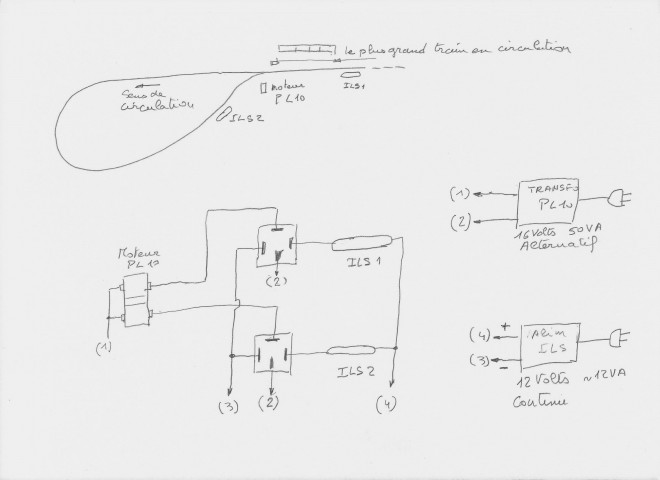 Le plus grand train en circulation
Sens de
circulation
Moteur
PL10
ILS1
ILS2
(1)
(2)
TRANSFO
PL10
16 Volts 50VA
Alternatif
Moteur
PL10
(1)
(2)
ILS1
ILS2
(3)
(2)
(4)
(4)
+
(3)
-
ILS
12 Volts ~12VA
Continu